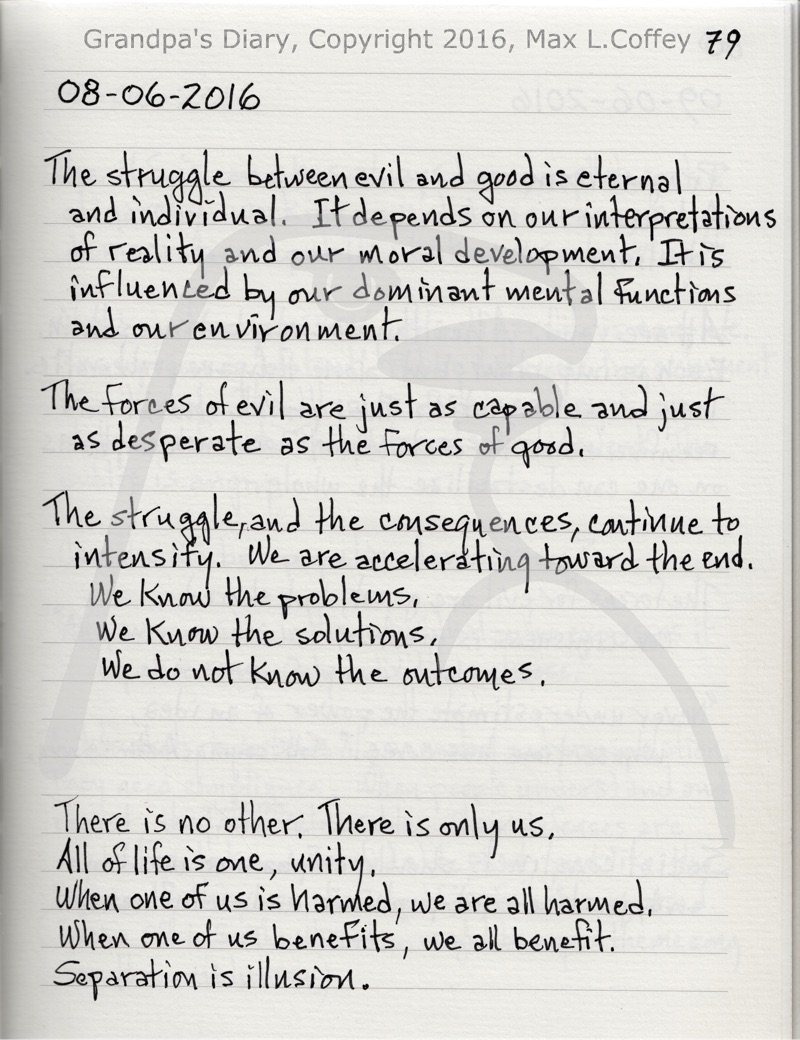 Grandpa's Diary, Copyright 2016, Max L.Coffey 79
08-06-2016
The struggle between evil and good is eternal
and individual. It depends on our interpretations
of reality and our moral development. It is
influenced by our dominant mental functions
and our environment.
The forces of evil are just as capable and just
as desperate as the forces of good.
The struggle, and the consequences, continue to
intensify. We are accelerating toward the end.
We know the problems.
We know the solutions.
We do not know the outcomes.
There is no other. There is only us.
All of life is one, unity.
When one of us is harmed, we are all harmed.
When one of us benefits, we all benefit.
Separation is illusion.